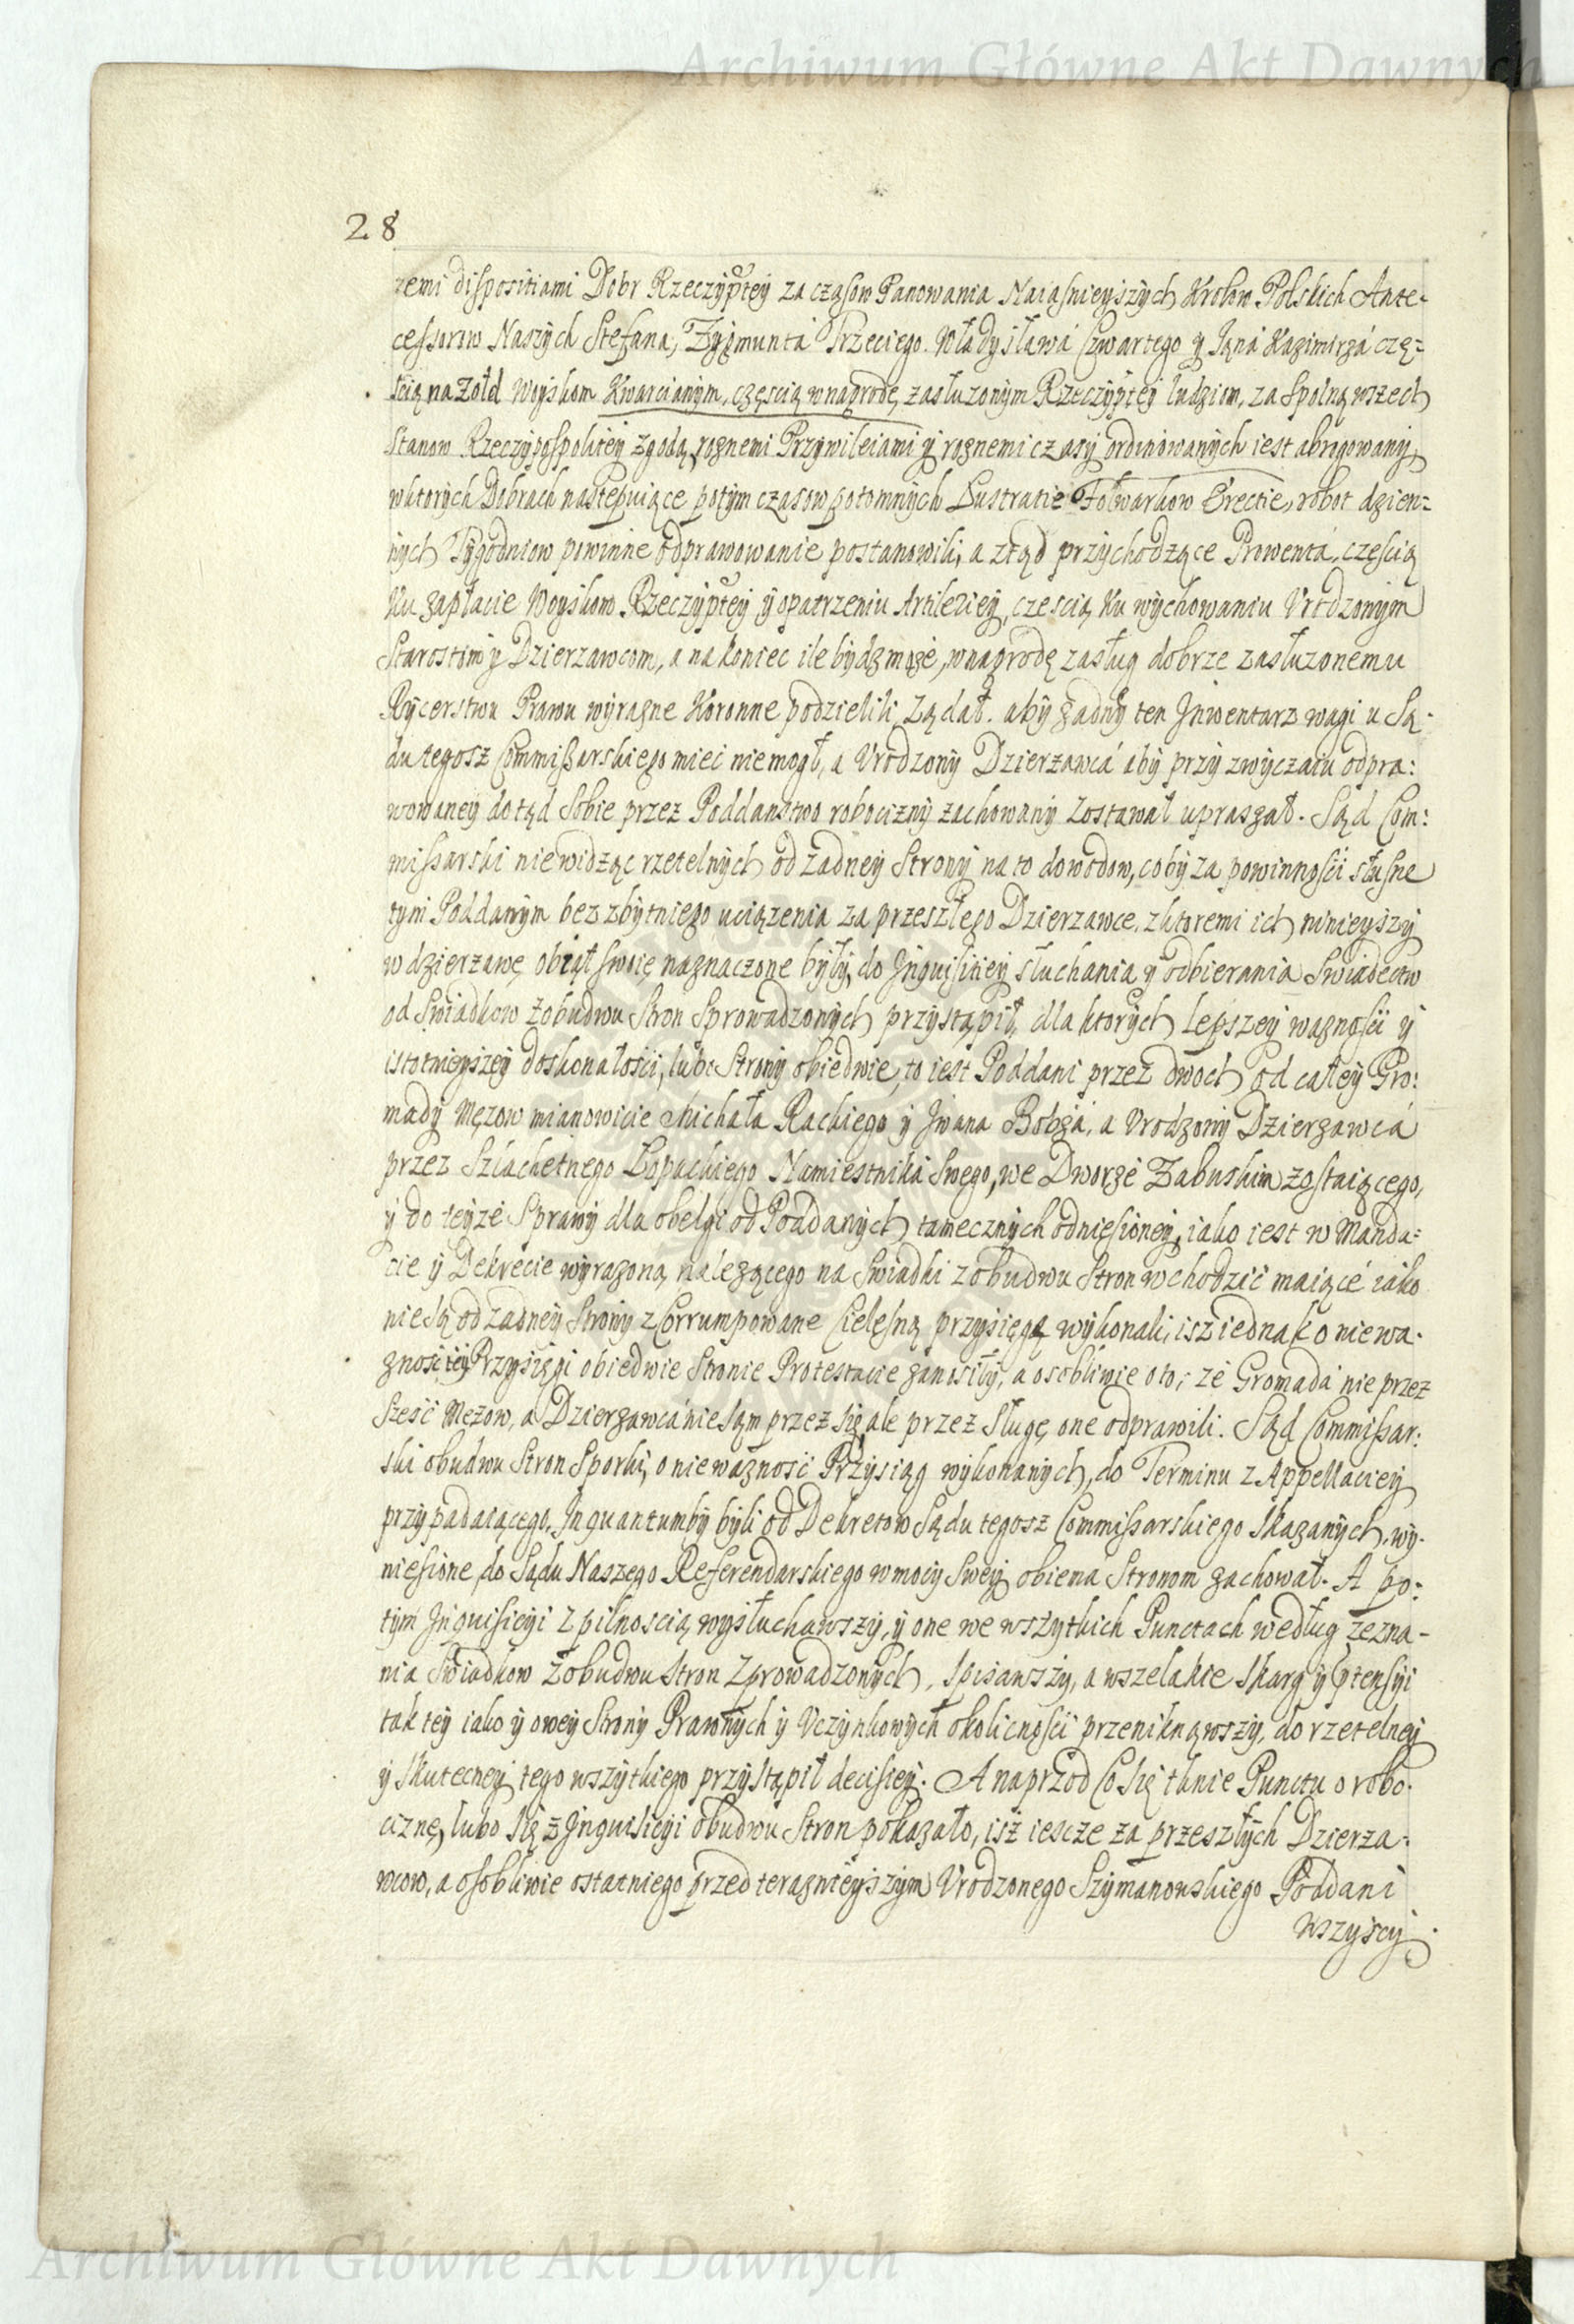 Archiwum Główne Akt Dawnych
28
remi dispositiami Dobr Rzeczyptey za czasow Panowania Naiasnieyszych Krolow Polskich Ante-
cessorow Naszych Stefana, Zygmunta Trzeciego. Władysława Czwartego y Jana Kazimirza czę-
scią na żołd Woyskom Kwarcianym, częscią w nagrodę zasłuzonym Rzeczyptey ludziom, za spolną wszech
Stanow Rzeczypospolitey zgodą, roznemi Przywileiami y roznemi czasy ordinowanych iest abrogowany,
w ktorych Dobrach następuiące potym czasow potomnych Lustratie Folwarkow Erectie, robot dzien-
nych Tygodniow powinne odprawowanie postanowili, a ztąd przychodzące Prowenta, częscią
Ku zapłacie Woyskom Rzeczyptey y opatrzeniu Artileriey, czescią Ku wychowaniu Vrodzonym
Starostom y Dzierzawcom, a na koniec ile bydz moze, w nagrodę zasług dobrze zasłuzonemu
Rycerstwu Prawu wyrazne Koronne podzielili, Ządał. aby zadny ten Jnwentarz wagi u Są-
du tegosz Commissarskiego miec niemogł, a Vrodzony Dzierzawca aby przy zwyczaiu odpra:
wowaney dotąd sobie przez Poddanstwo robocizny zachowany zostawał upraszał. Sąd Com:
missarski nie widząc rzetelnych od zadney Strony na to dowodow, coby za powinności słusne
tym Poddanym bez zbytniego uciązenia za przeszłego Dzierzawce, z ktoremi ich ninieyszy
w dzierzawę obiął swoię naznaczone były, do Jnquisitiey słuchania y odbierania Swiadectw
od Swiadkow z obudwu Stron Sprowadzonych przystąpił, dla ktorych lepszey wazności y
istotnieyszey doskonałości, lubo Strony obiedwie, to iest Poddani przez dwoch od całey Gro:
mady Męzow mianowicie Michała Rackiego y Jwana Bobza, a Vrodzony Dzierzawca
przez Szlachetnego Łopackiego Namiestnika Swego, we Dworze Zabuskim zostaiącego,
y do teyze Sprawy dla obelgi od Poddanych tamecznych odniesioney, iako iest w Manda-
cie y Dekrecie wyrazoną, nalezącego na Swiadki z obudwu Stron wchodzić maiące iako
nie są od zadney Strony z Corrumpowane Cielesną przysięgę wykonali, isz iednak o niewa-
znosc tey Przysięgi obiedwie Stronie Protestacie zanosiły, a osobliwie oto; ze Gromada nie przez
Szesc Męzow, a Dzierzawca nie sąm przez się, ale przez Sługę, one odprawili. Sąd Commissar:
ski obudwu Stron Sporki, o niewaznosc Przysiąg wykonanych, do Terminu z Appellaciey
przypadaiącego, Jnquantumby byli od Dekretow Sądu tegosz Commissarskiego Skazanych, wy-
niesione, do Sądu Naszego Referendarskiego w mocy swey obiema Stronom zachował. A po-
tym Jnquisicyi z pilnoscią wysłuchawszy, y one we wszytkich Punctach według zezna-
nia Swiadkow z obudwu Stron Zprowadzonych, spisawszy, a wszelakie Skarg y ptensyi
tak tey iako y owey Strony Prawnych y Vczynkowych okoliczności przeniknąwszy, do rzetelney
y Skuteczney tego wszytkiego przystąpił decisiey. A naprzod Co się tknie Punctu o robo-
ciznę, lubo się z Jnquisicyi obudwu Stron pokazało, isz iescze za przeszłych Dzierza-
wcow, a osobliwie ostatniego przed teraznieyszym Vrodzonego Szymanowskiego Poddani
wszyscy
Archiwum Główne Akt Dawnych